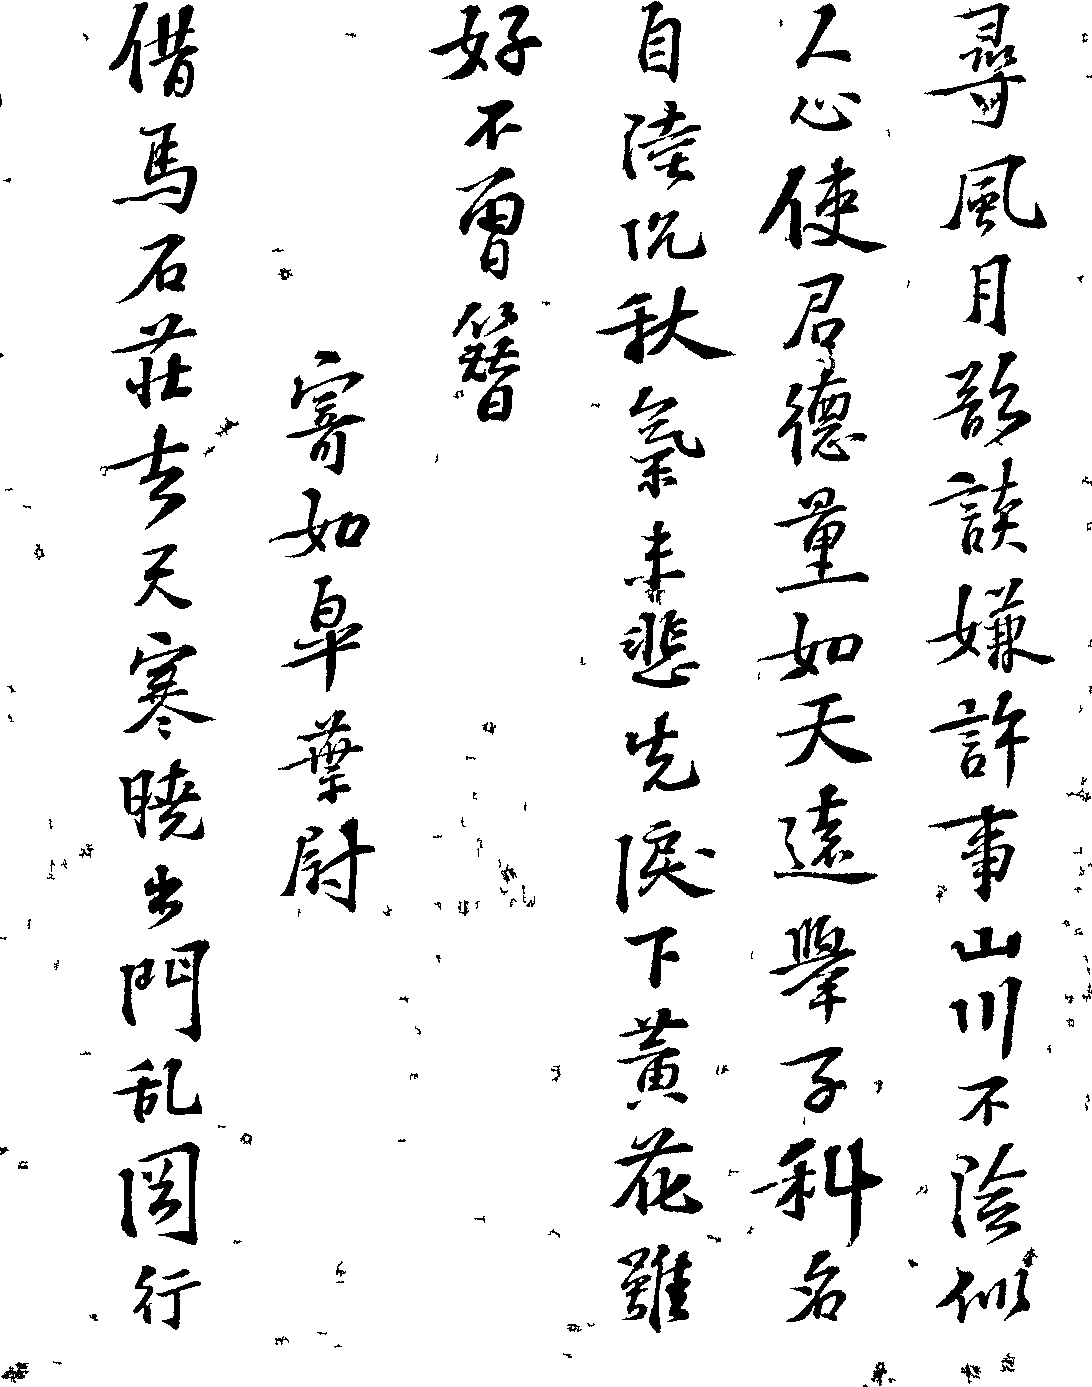 尋風月談嫌許事山川不險似
人心使君德量如天遠舉子科名
自陸沉秋氣未悲先淚下黃花雖
好不曾簪
寄如皐葉尉
借馬石莊去天寒曉出門乱岡行